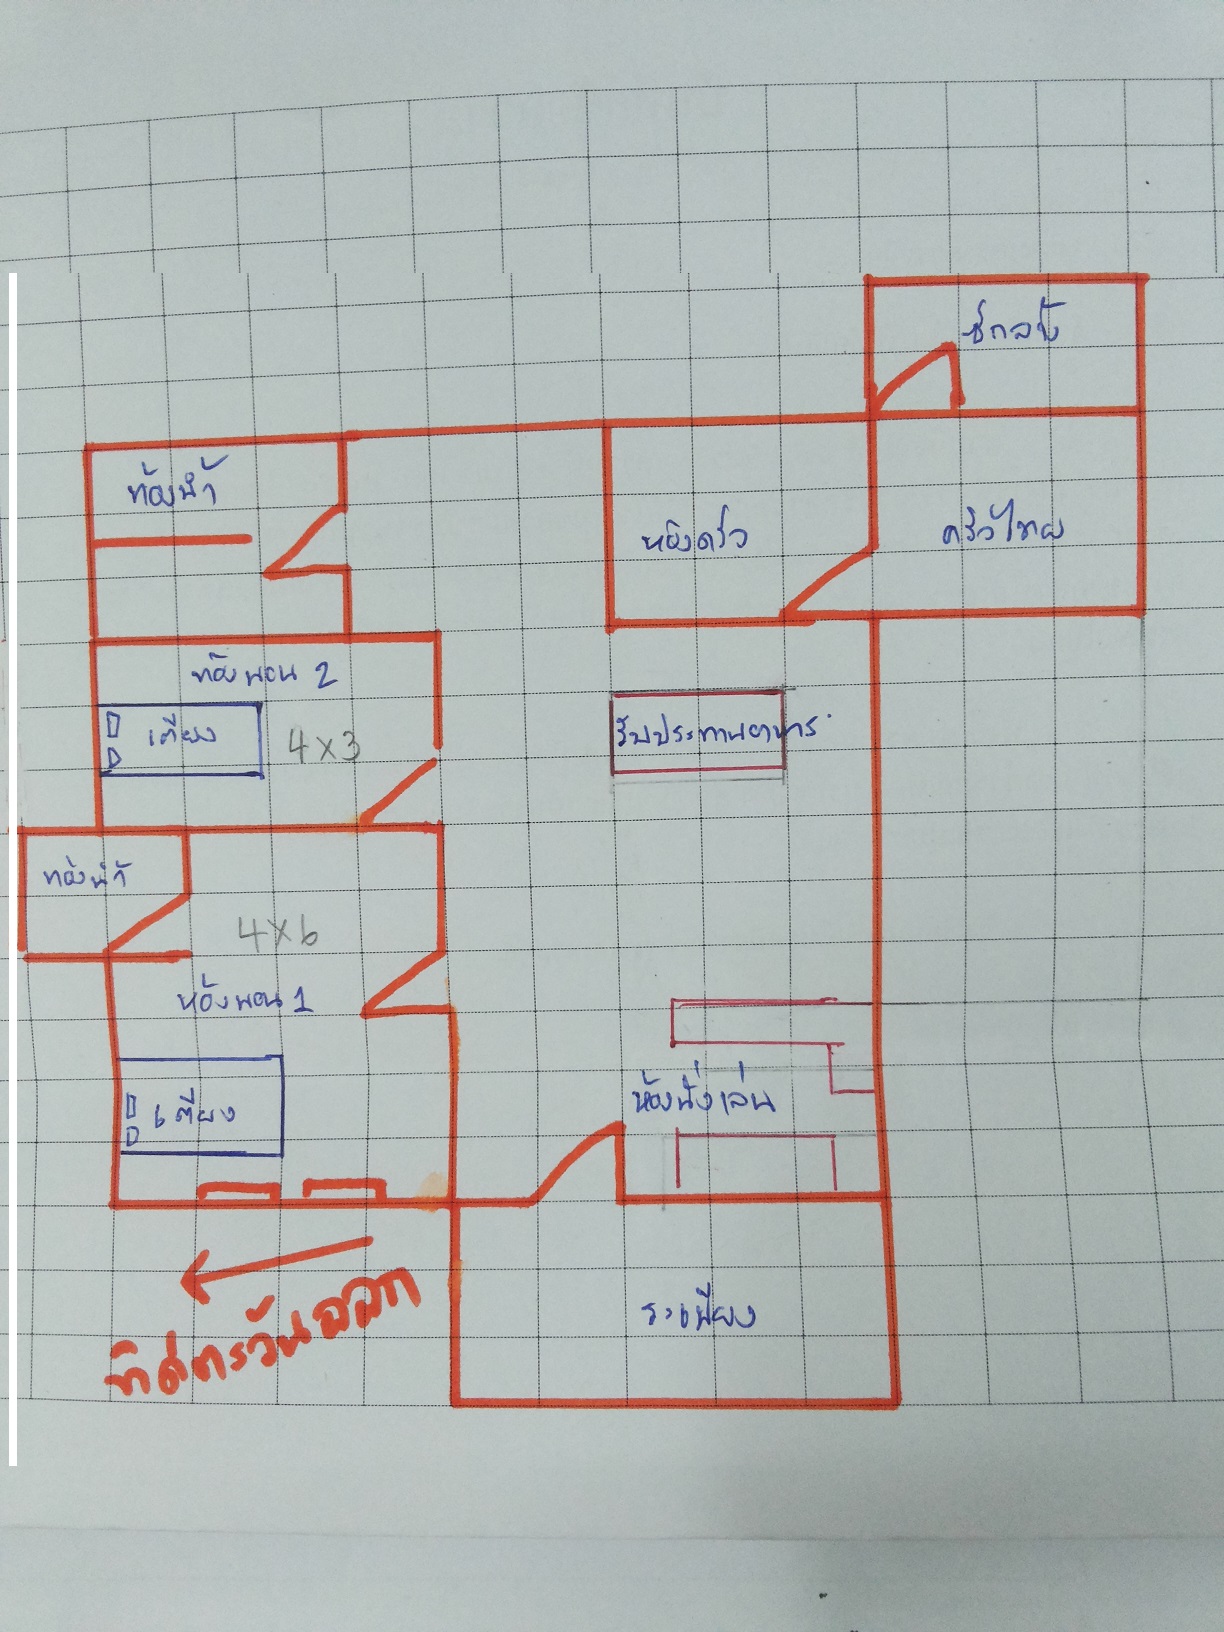 ซักล้าง
ห้องน้ำ
ห้องครัว
ครัวไทย
ห้องนอน 2
เตียง
4x3
รับประทานอาหาร
ห้องน้ำ
4x6
ห้องนอน 1
เตียง
ห้องนั่งเล่น
ระเบียง
ทิศตะวันออก